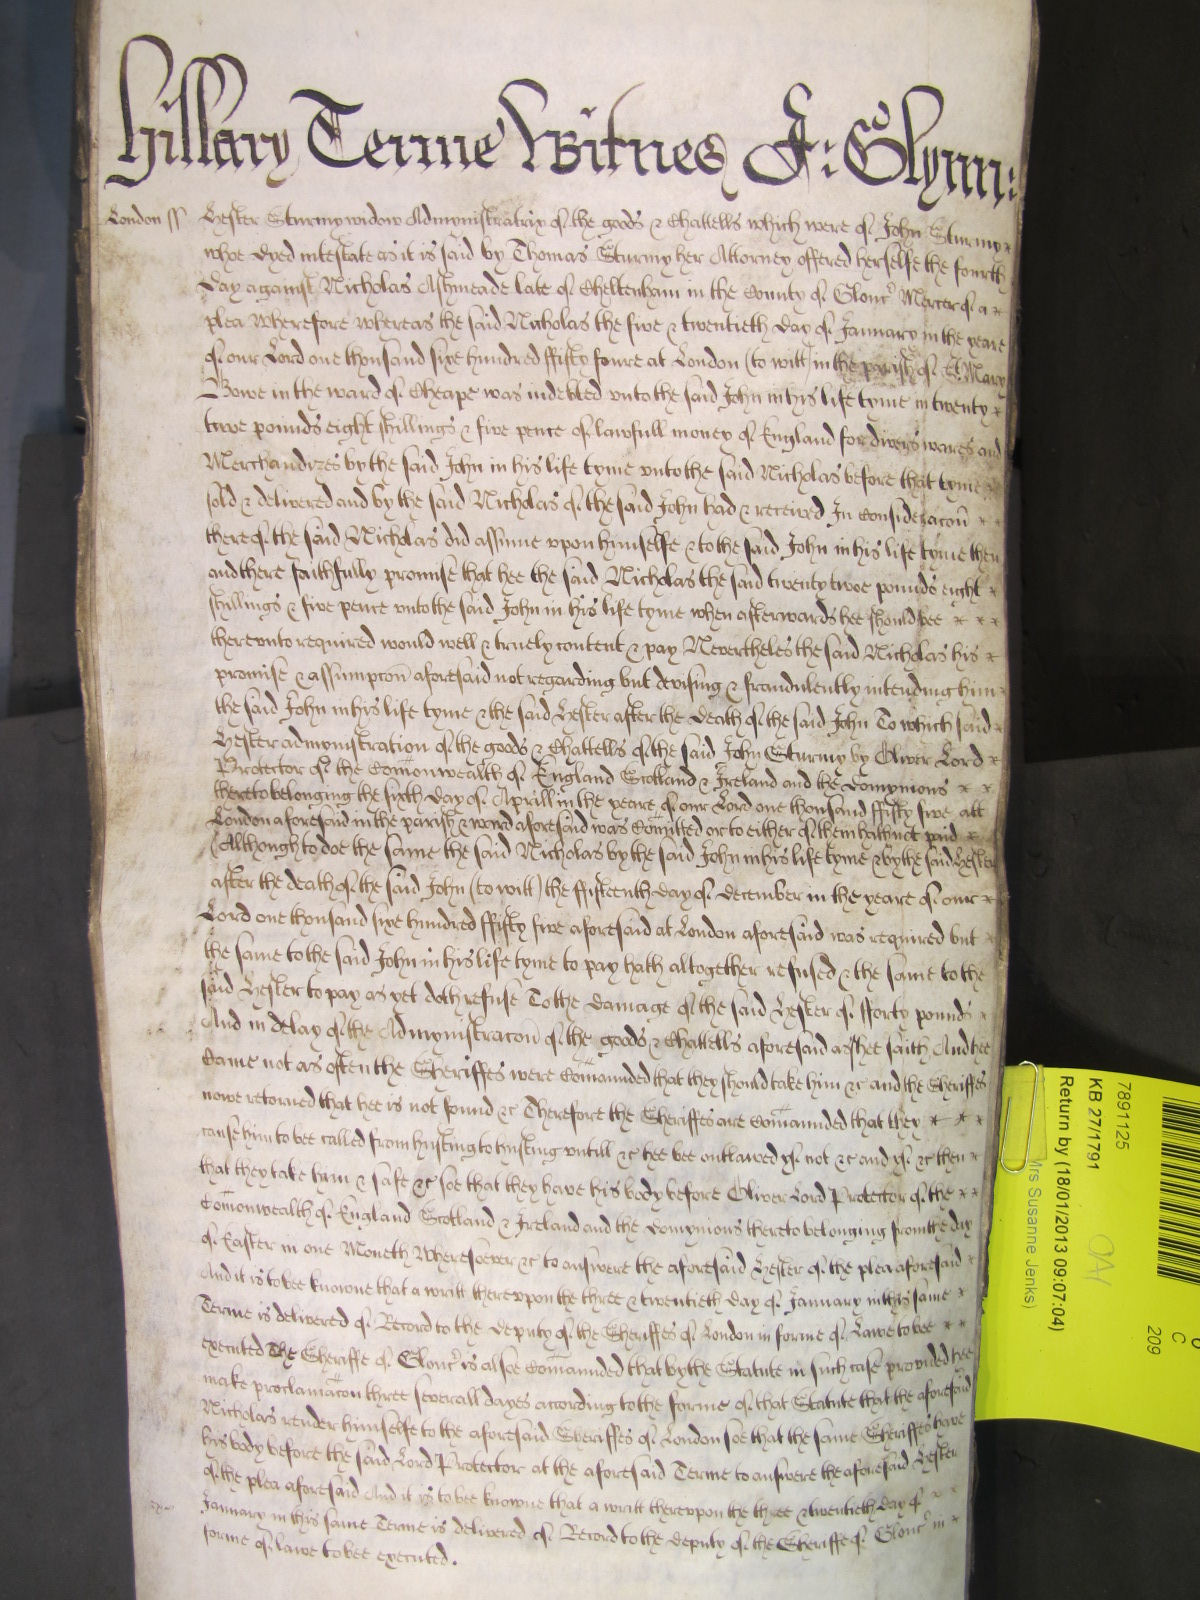 Hillary Terme Witnes J: Glynn:
London ss Hester Sturmy widow Admynistratrix of the goods & Chattells which were of John Sturmy
whoe dyed intestate as it is said by Thomas Sturmy her Attorney offered herselfe the fourth
Day against Nicholas Ashmeade late of Cheltenham in the County of Glouc' Mercer of a
plea Wherefore whereas the said Nicholas the five & twentieth day of January in the yeare
of our Lord one thousand sixe hundred ffifty foure at London (to witt) in the parish of St Mary
Bowe in the ward of Cheape was indebted unto the said John in his life tyme in twenty
twoe pounds eight shillings & five pence of lawfull money of England for divers wares and
Merchandizes by the said John in his life tyme unto the said Nicholas before that tyme
sold & delivered and by the said Nicholas of the said John had & received In Consideracon
thereof the said Nicholas did assume upon himselfe & to the said John in his life tyme then
and there faithfully promise that hee the said Nicholas the said twenty twoe pounds eight
shillings & five pence unto the said John in his life tyme when afterwards hee should bee
thereunto required would well & truely content & pay Nevertheles the said Nicholas his
promise & assumpcon aforesaid not regarding but devising & fraudulently intending him
the said John in his life tyme & the said Hester after the death of the said John To which said
Hester admynistration of the goods & Chattells of the said John Sturmy by Oliver Lord
Protector of the Comonwealth of England Scotland & Ireland and the Domynions
thereto belonging the sixth day of Aprill in the yeare of our Lord one thousand ffifty five att
London aforesaid in the parish & ward aforesaid was Comitted or to either of them hath not paid
(Although to doe the same the said Nicholas by the said John in his life tyme & by the said Hester
after the death of the said John (to witt) the ffifteenth day of December in the yeare of our
Lord one thousand sixe hundred ffifty five aforesaid at London aforesaid was required but
the same to the said John in his life tyme to pay hath altogether refused & the same to the
said Hester to pay as yet doth refuse To the damage of the said Hester of fforty pounds
And in delay of the Admynistracon of the goods & Chattells aforesaid as shee saith And hee
Came not as often the Sheriffes were Comaunded that they should take him &c and the Sheriffes
nowe retorned that hee is not found &c Therefore the Sheriffes are Comaunded that they
cause him to bee called from husting to husting untill &c hee bee outlawed yf not &c and yf &c then
that they take him & safe &c soe that they have his body before Oliver Lord Protector of the
Comonwealth of England Scotland & Ireland and the Domynions thereto belonging from the day
of Easter in one Moneth Wheresoever &c to answere the aforesaid Hester of the plea aforesaid
And it is to bee knowne that a writt thereupon the three & twentieth day of January in this same
Terme is delivered of Record to the deputy of the Sheriffes of London in forme of Lawe to bee
executed The Sheriffe of Glouc' is alsoe Comaunded that by the Statute in such case provided hee
make proclamacon three severall dayes according to the forme of that Statute that the aforesaid
Nicholas render himselfe to the aforesaid Sheriffes of London soe that the same Sheriffes have
his body before the said Lord Protector at the aforesaid Terme to answere the aforesaid Hester
of the plea aforesaid And it is to bee knowne that a writt thereupon the three & twentieth day of
January in this same Terme is delivered of Record to the deputy of the Sheriffe of Glouc' in
forme of lawe to bee executed.
7891125
KB 27/1791
Return by (18/01/2013 09:07:04)
Mrs Susanne Jenks)
C
209